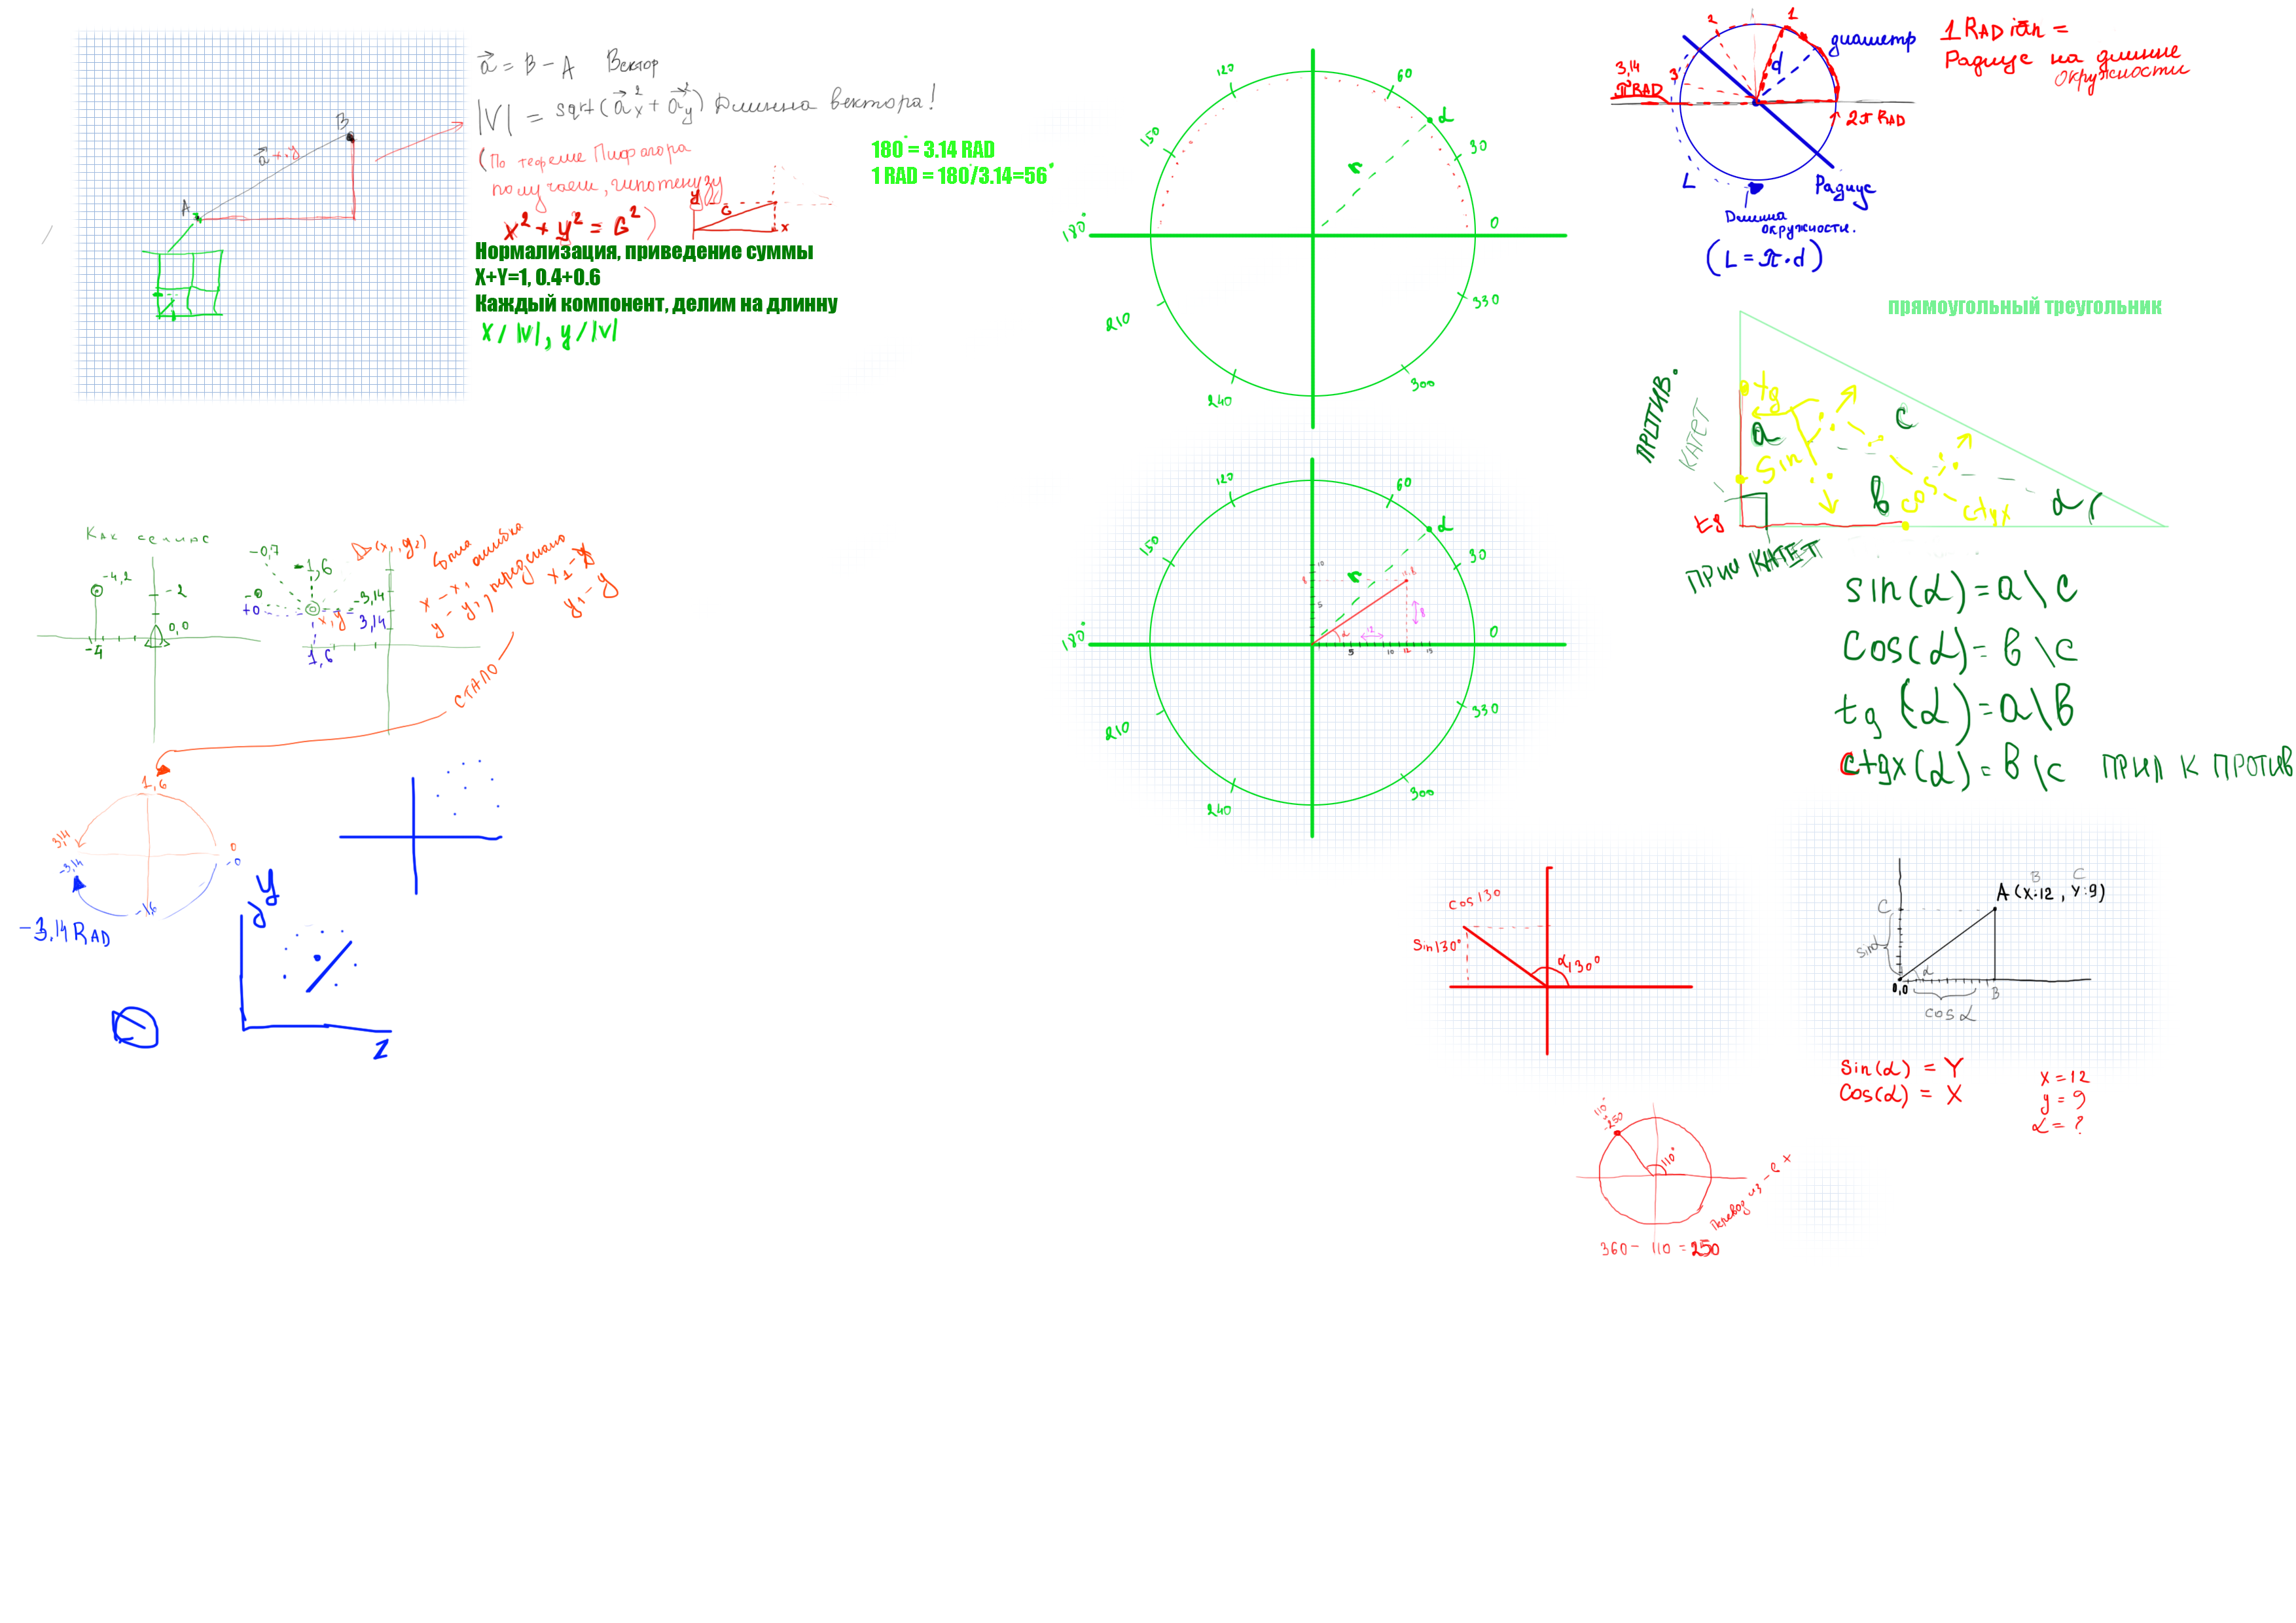 a = B - A Вектор
|V| = sqrt(a²x + a²y) Длинна вектора!
(По теореме Пифагора
получаем, гипотенузу
x² + y² = G²)
y
G
x
B
a x.y
A
Нормализация, приведение суммы
X+Y=1, 0.4+0.6
Каждый компонент, делим на длинну
X / |V|, y / |V|
180° = 3.14 RAD
1 RAD = 180°/3.14=56°
120
60
α
150
30
r
180°
0
210
330
240
300
2
1
диаметр
3,14
3
d
π RAD
2π RAD
L
Радиус
Длинна
окружности.
(L = π·d)
1 RADian =
Радиус на длинне
окружности
прямоугольный треугольник
ПРОТИВ.
КАТЕТ
tg
a
c
sin
b
cos
ctgx
α
tg
ПРИЛ КАТЕТ
sin(α) = a \ c
cos(α) = в \ c
tg(α) = a \ в
ctgx(α) = в \ c ПРИЛ К ПРОТИВ
120
60
α
150
30
r
10
8
5
8
12
α
5
10
12
15
180°
0
210
330
240
300
Как сейчас
-4,2
-2
0,0
-4
-0,7
-1,6
-0
+0
-3,14
x,y
3,14
1,6
была ошибка
x - x₁
y - y₁, передълано
x₁ - x
y₁ - y
СТАЛО
1,6
3,14
-3,14
0
-0
-1,6
-3,14 RAD
y
z
cos 130
sin 130°
α 130°
B
C
A (X:12, Y:9)
C
sinα
α
0,0
B
cos α
sin(α) = Y
cos(α) = X
x = 12
y = 9
α = ?
110°
-250
110°
Перевод из - в +
360 - 110 = 250